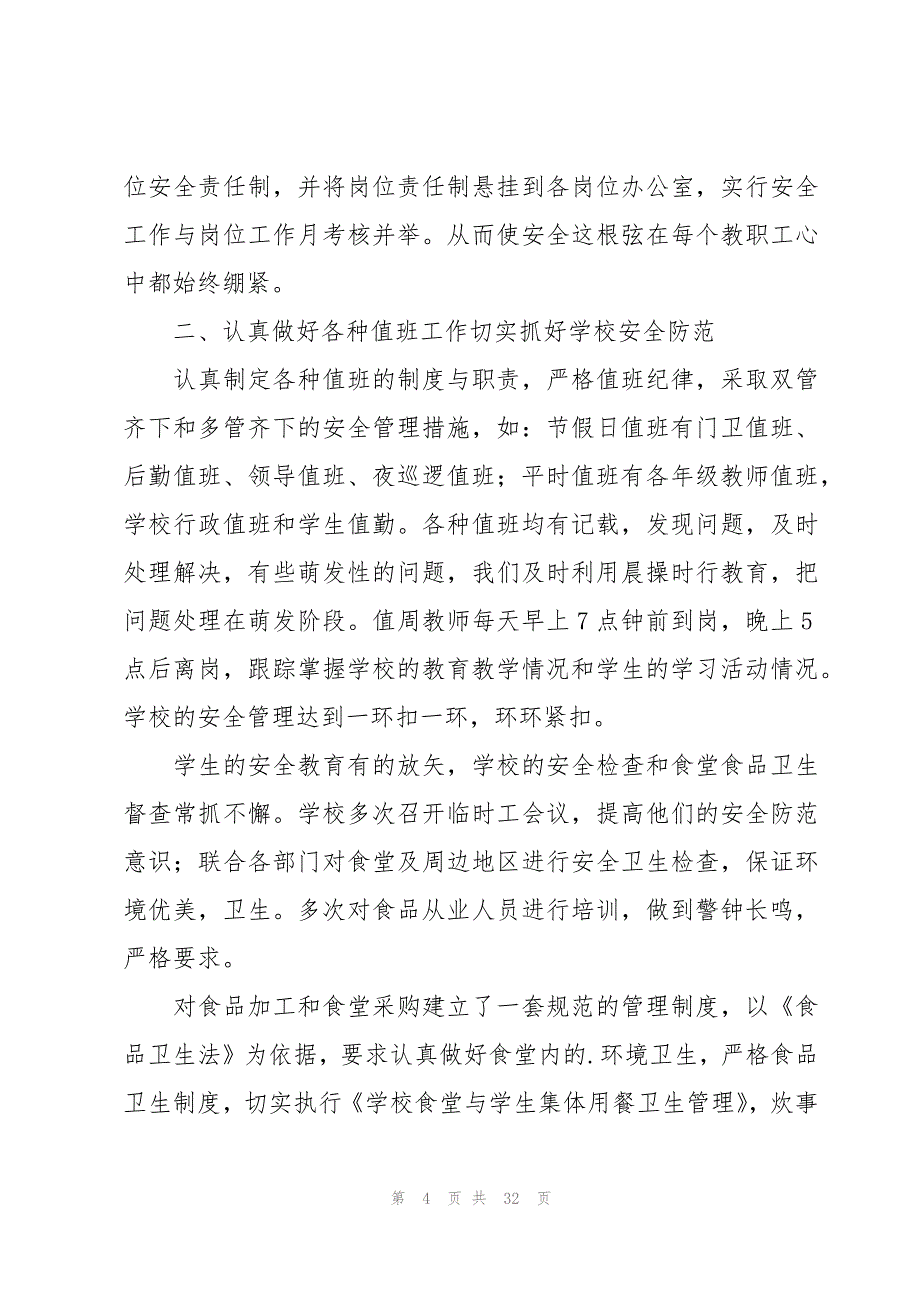 位安全责任制，并将岗位责任制悬挂到各岗位办公室，实行安全
工作与岗位工作月考核并举。从而使安全这根弦在每个教职工心
中都始终绷紧。
二、认真做好各种值班工作切实抓好学校安全防范
认真制定各种值班的制度与职责，严格值班纪律，采取双管
齐下和多管齐下的安全管理措施，如：节假日值班有门卫值班、
后勤值班、领导值班、夜巡逻值班；平时值班有各年级教师值班，
学校行政值班和学生值勤。各种值班均有记载，发现问题，及时
处理解决，有些萌发性的问题，我们及时利用晨操时行教育，把
问题处理在萌发阶段。值周教师每天早上 7 点钟前到岗，晚上 5
点后离岗，跟踪掌握学校的教育教学情况和学生的学习活动情况。
学校的安全管理达到一环扣一环，环环紧扣。
学生的安全教育有的放矢，学校的安全检查和食堂食品卫生
督查常抓不懈。学校多次召开临时工会议，提高他们的安全防范
意识；联合各部门对食堂及周边地区进行安全卫生检查，保证环
境优美，卫生。多次对食品从业人员进行培训，做到警钟长鸣，
严格要求。
对食品加工和食堂采购建立了一套规范的管理制度，以《食
品卫生法》为依据，要求认真做好食堂内的.环境卫生，严格食品
卫生制度，切实执行《学校食堂与学生集体用餐卫生管理》，炊事
第 4 页 共 32 页